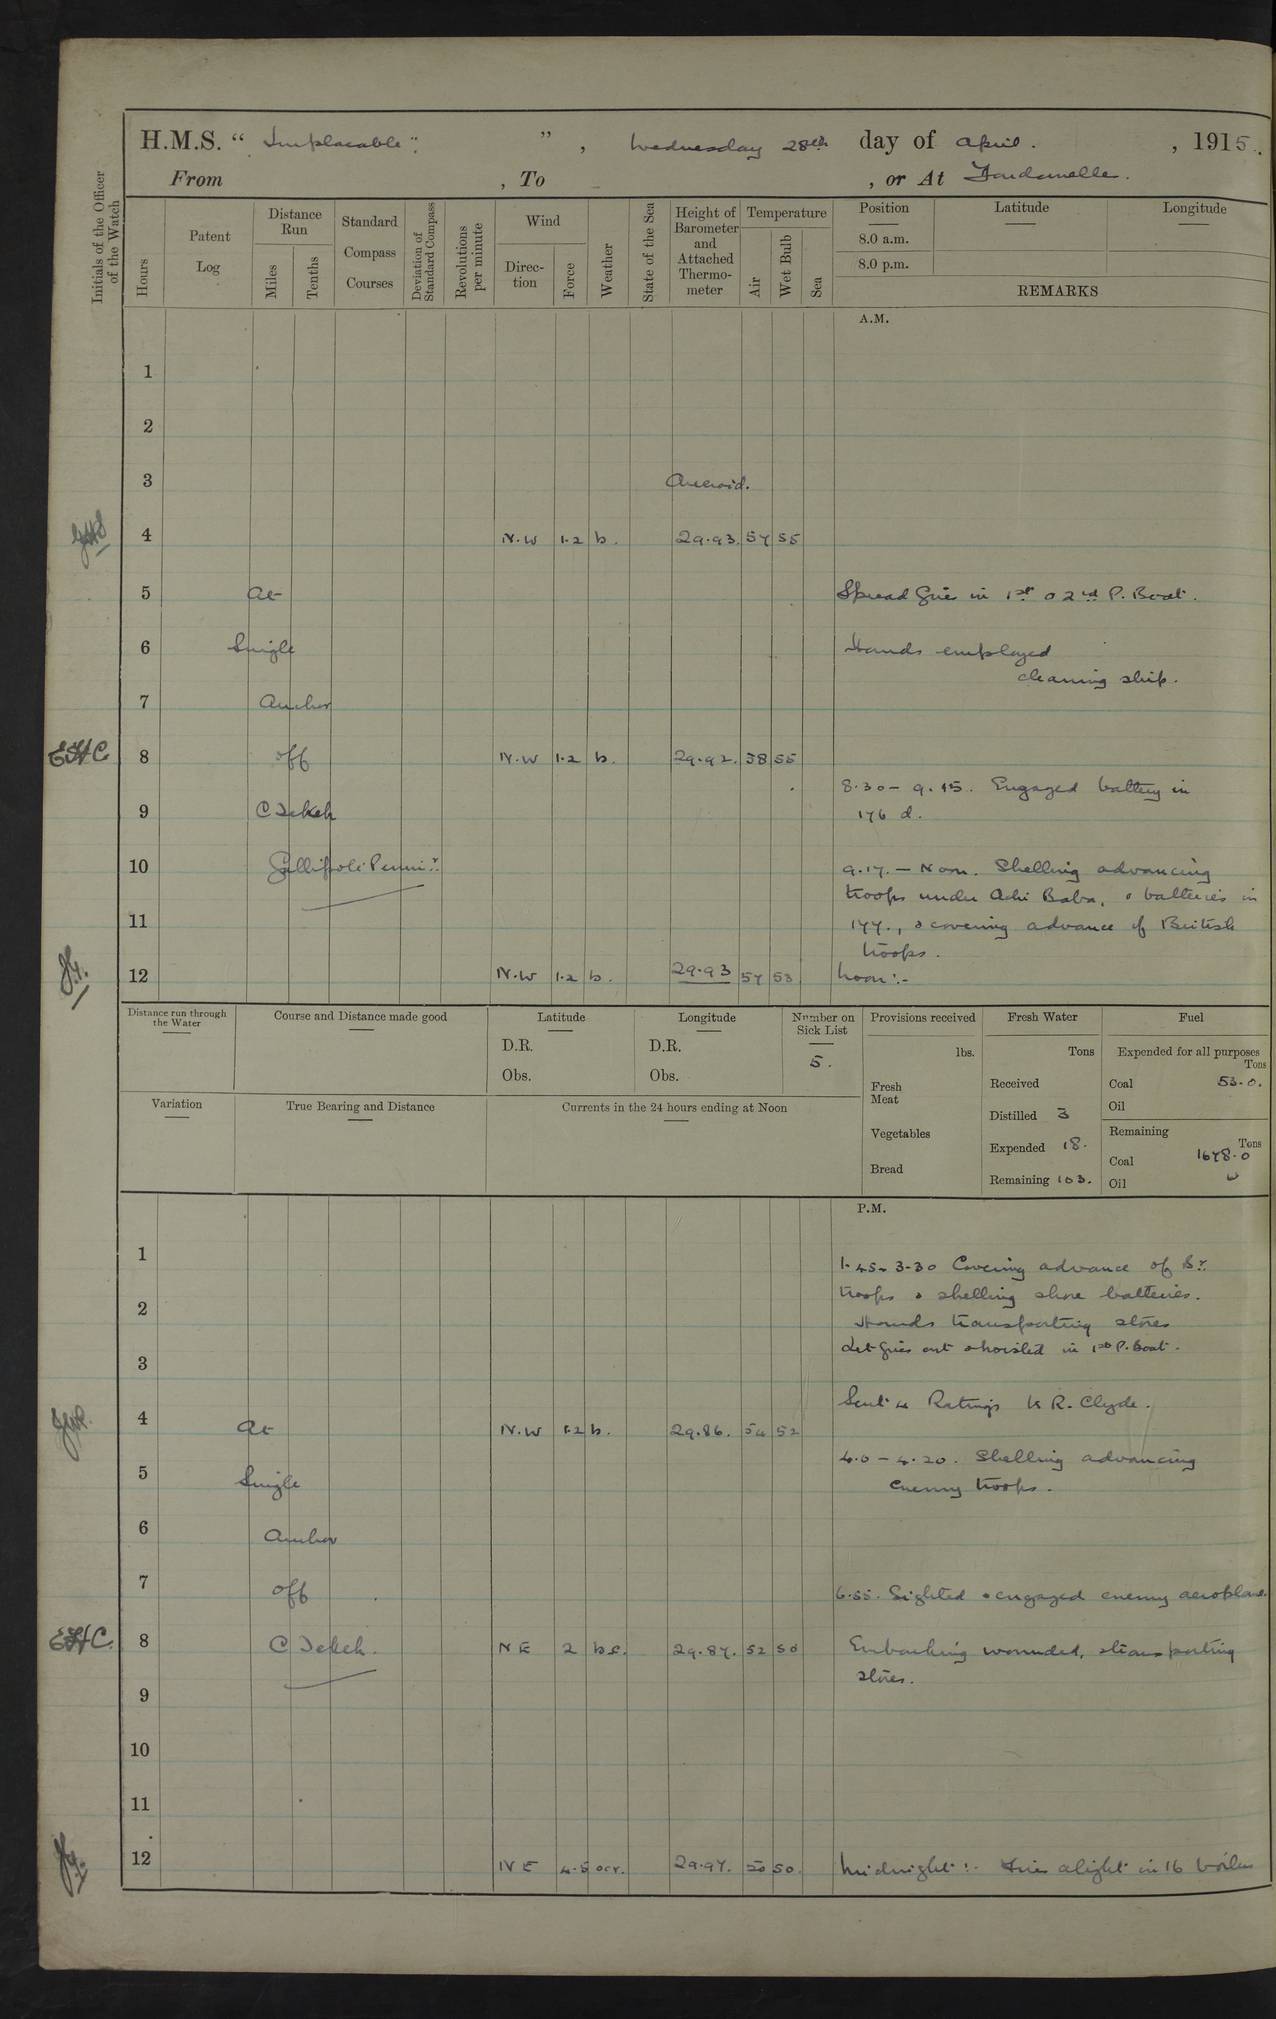 H.M.S. “ Implacable ” , Wednesday 28th day of April. , 1915.
From , To , or At Dardanelles.
Initials of the Officer of the Watch
Hours
Patent Log
Distance Run
Miles
Tenths
Standard Compass Courses
Deviation of Standard Compass
Revolutions per minute
Wind
Direction
Force
Weather
State of the Sea
Height of Barometer and Attached Thermometer
Temperature
Air
Wet Bulb
Sea
Position Latitude Longitude
8.0 a.m.
8.0 p.m.
REMARKS
A.M.
1
2
3 Aneroid.
4 N.W 1.2 b. 29.93. 57 55
5 At Spread Gries in 1st o 2nd P. Boat.
6 Single Hands employed
cleaning ship.
7 Anchor
EHC 8 off N.W 1.2 b. 29.92. 58 55
8.30 - 9.15. Engaged battery in
9 C Tekeh 176 d.
10 Gallipoli Penin:r 9.17. - Noon. Shelling advancing
troops under Achi Baba, o batteries in
11 177., o covering advance of British
troops.
12 N.W 1.2 b. 29.93 57 53 Noon:-
Distance run through the Water
Course and Distance made good
Latitude
D.R.
Obs.
Longitude
D.R.
Obs.
Number on Sick List
5.
Provisions received
lbs.
Fresh Meat
Vegetables
Bread
Fresh Water
Tons
Received
Distilled 3
Expended 18.
Remaining 103.
Fuel
Expended for all purposes
Tons
Coal 53.0.
Oil
Remaining
Tons
Coal 1678.0
Oil
Variation
True Bearing and Distance
Currents in the 24 hours ending at Noon
P.M.
1 1.45 - 3-30 Covering advance of Br.
troops o shelling shore batteries.
2 Hands transporting stores
3 out o hoisted in 1st P. Boat.
Sent 4 Ratings to R. Clyde.
4 At N.W 1.2 b. 29.86. 54 52
4.0 - 4.20. Shelling advancing
5 Single enemy troops.
6 Anchor
7 off 6.55. Sighted o engaged enemy aeroplane.
EHC. 8 C Tekeh. N E 2 bc. 29.87. 52 50 Embarking wounded, o transporting
stores.
9
10
11
12 N E 4.5 ocr. 29.97. 50 50. Midnight:- Fires alight in 16 boilers